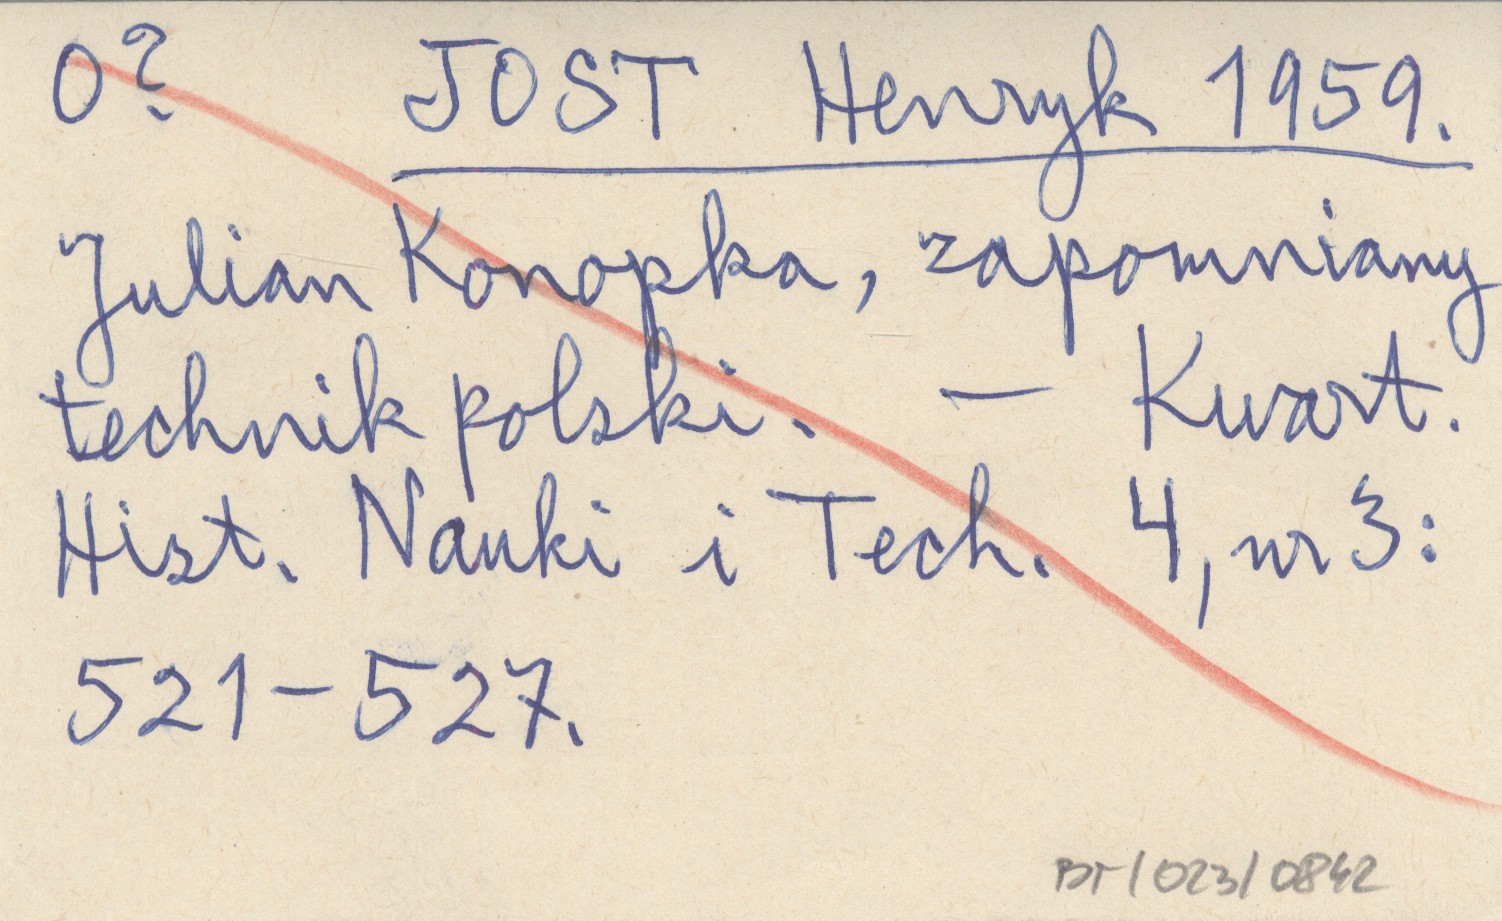 0? JOST Henryk 1959.
Julian Konopka, zapomniany
technik polski. — Kwart.
Hist. Nauki i Tech. 4, nr 3:
521-527.
BT/023/0842